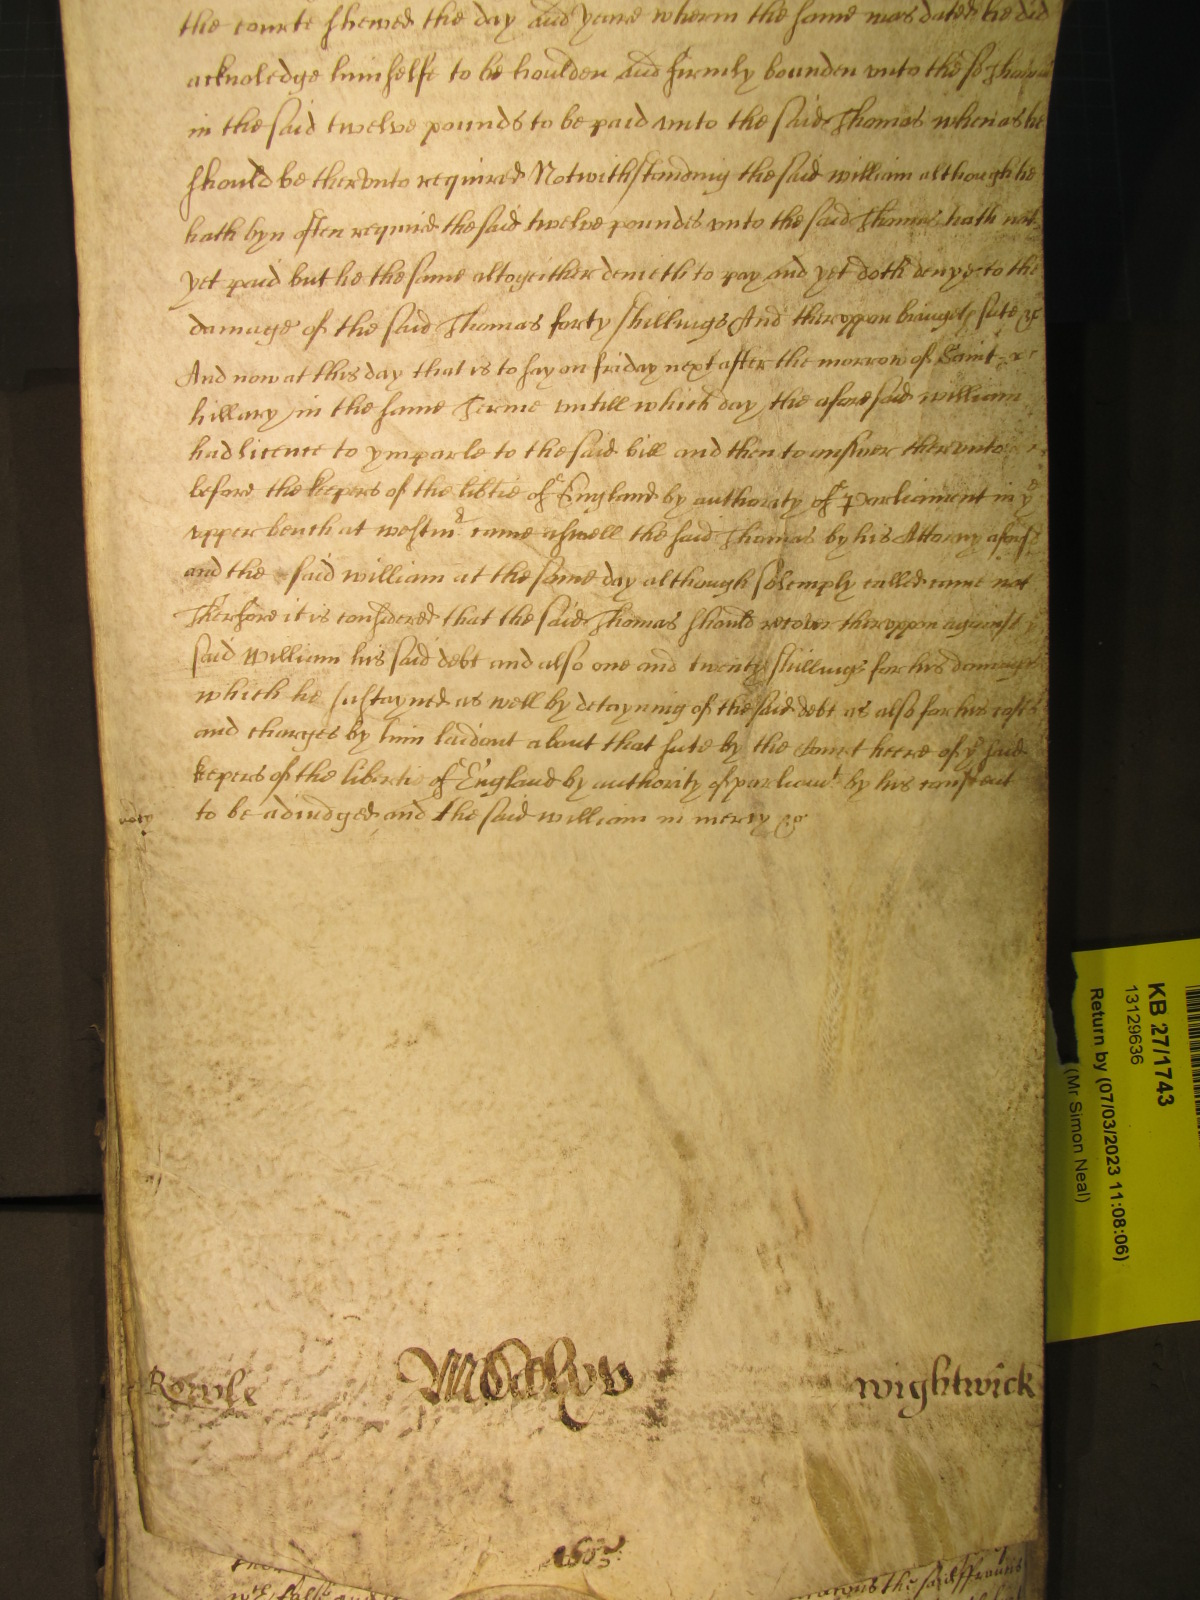 the courte shewed the day And yeare wherin the same was dated he did
acknoledge himselfe to be houlden And firmly bounden vnto the sd Thomas
in the said twelve pounds to be paid vnto the said Thomas when as he
should be thervnto required Notwithstanding the said william although he
hath byn often required the said twelve poundes vnto the said Thomas hath not
yet paid but he the same altogeither denieth to pay and yet doth denye to the
damage of the said Thomas forty shillings And theruppon bringeth sute &c
And now at this day that is to say on friday next after the morrow of Saint
hillary in the same Terme vntill which day the aforesaid william
had licence to ymparle to the said bill and then to answer thervnto
before the keepers of the libtie of England by authority of Parliament in ye
vpper bench at westmr came aswell the said Thomas by his Attorny aforesd
and the said william at the same day although solemply called came not
Therfore it is considered that the said Thomas should recover theruppon against ye
said William his said debt and also one and twenty shillings for his damages
which he sustayned as well by detayning of the said debt as also for his costs
and charges by him laid out about that sute by the Court heere of ye said
kepers of the libertie of England by authority of parliamt by his consent
to be adiudged and the said william in mercy &c
Rowle
wightwick
1653
KB 27/1743
13129636
Return by (07/03/2023 11:08:06)
(Mr Simon Neal)